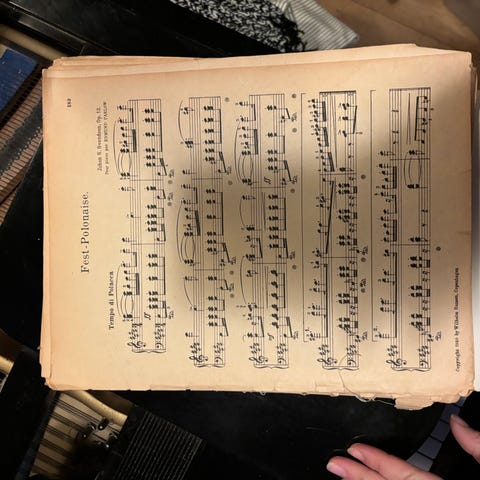 183
Fest-Polonaise.
Johan S. Svendsen, Op. 12.
Pour piano par EDMUND PARLOW
Tempo di Polacca.
ff
ff
Copyright 1940 by Wilhelm Hansen, Copenhagen